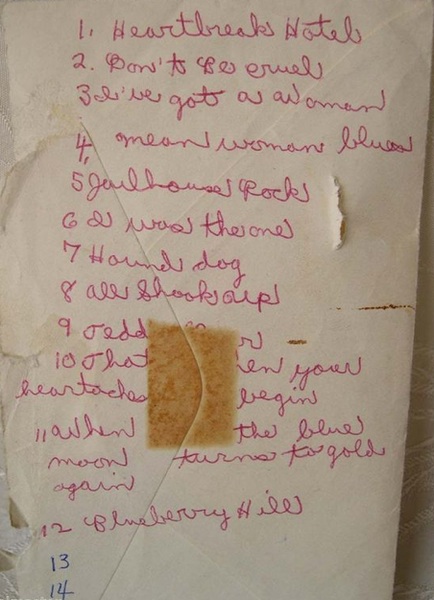 1. Heartbreak Hotel
2. Don't Be cruel
3 I've got a woman
4, mean woman blues
5 Jailhouse Rock
6 I was the one
7 Hound dog
8 all Shook up
9 r
10 en your
heartaches begin
11 When the blue
moon turns to gold
again
12 Blueberry Hill
13
14